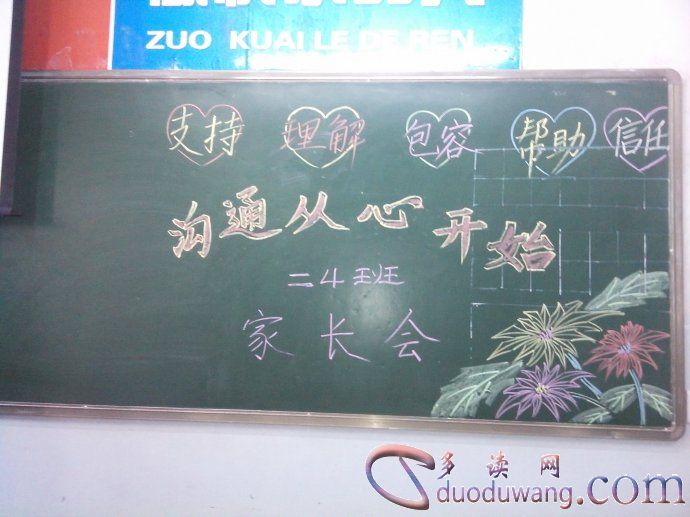 ZUO KUAI LE DE REN
支持 理解 包容 帮助 信任
沟通从心开始
二4班
家长会
多读网
duoduwang.com